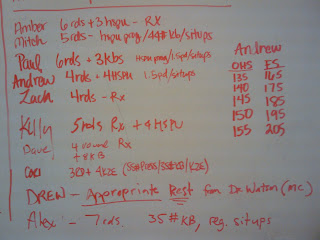 Amber 6rds + 3hspu - RX
Mitch 5rds - hspu prog/44# Kb/situps
Paul 6rds + 3kbs HSPU prog/1.5pd/situps
Andrew 4rds + 4HSPU 1.5pd/situps
Zach 4rds - Rx
Kelly 5rds Rx + 4HSPU
Dave 4 round Rx
+ 8KB
3RD + 42E (55#Press/55#KB/K2E)
DREW - Appropriate Rest from Dr. Watson (mc.)
Alex - 7rds. 35# KB, reg. situps
Andrew
OHS FS
135 165
140 175
145 185
150 195
155 205